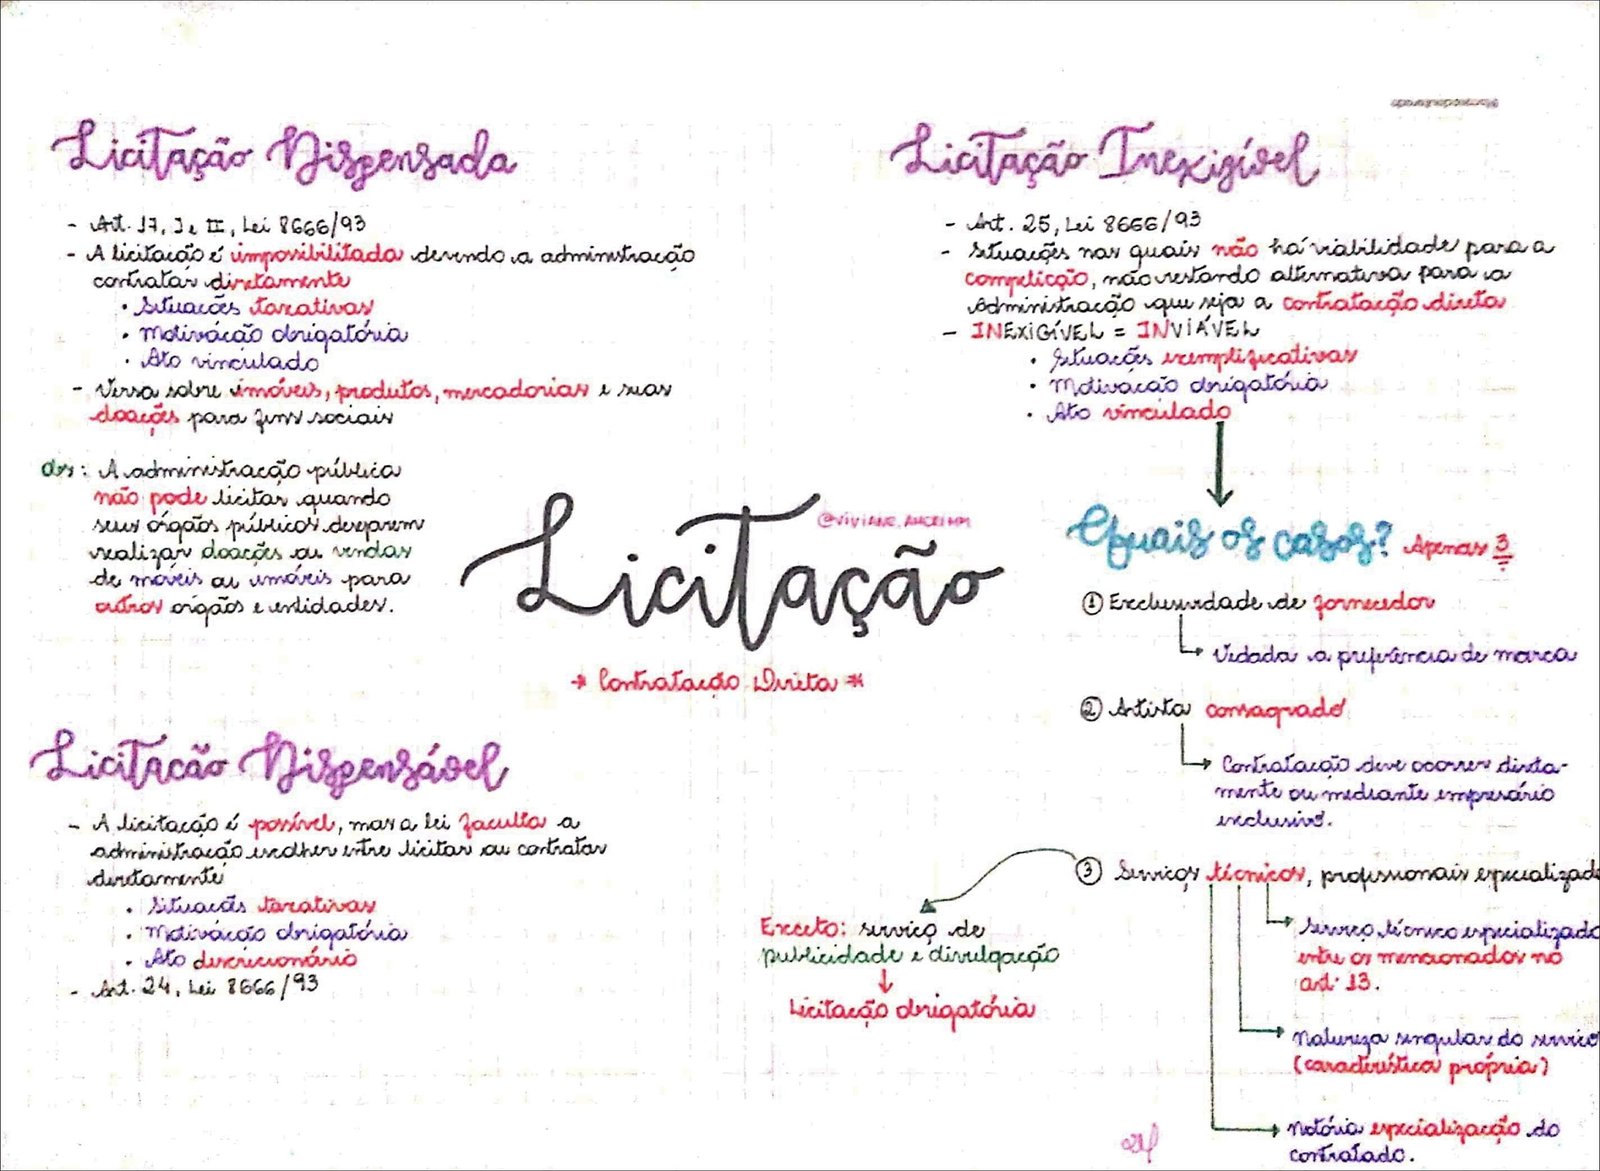 Licitação Dispensada
- Art. 17, I e II, Lei 8666/93
- A licitação é impossibilitada devendo a administração
contratar diretamente
• Situações taxativas
• Motivação obrigatória
• Ato vinculado
- Versa sobre imóveis, produtos, mercadorias e suas
doações para fins sociais
obs: A administração pública
não pode licitar quando
seus órgãos públicos desejarem
realizar doações ou vendas
de móveis ou imóveis para
outros orgãos e entidades.
Licitação
* Contratação Direta *
Licitacão Dispensável
- A licitação é possível, mas a lei faculta a
administração escolher entre licitar ou contratar
diretamente
• Situações taxativas
• Motivação obrigatória
• Ato discricionário
- Art. 24, Lei 8666/93
Licitação Inexigível
- Art. 25, Lei 8666/93
- Situações nas quais não há viabilidade para a
competição, não restando alternativa para a
Administração que seja a contratação direta
- INEXIGÍVEL = INVIÁVEL
• Situações exemplificativas
• Motivação obrigatória
• Ato vinculado
Quais os casos? Apenas 3
① Exclusividade de fornecedor
Vedada a preferência de marca
② Artista consagrado
Contratação deve ocorrer direta-
mente ou mediante empresário
exclusivo.
③ Serviços técnicos, profissionais especializado
Exceto: serviço de
publicidade e divulgação
Licitação obrigatória
Serviço técnico especializado
entre os mencionados no
art. 13.
Natureza singular do serviço
(característica própria)
Notória especialização do
contratado.